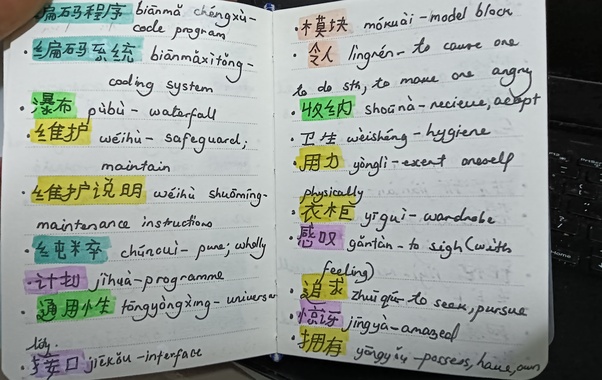 编码程序 biānmǎ chéngxù -
code program
• 编码系统 biānmǎxìtǒng -
coding system
• 瀑布 pùbù - waterfall
• 维护 wéihù - safeguard;
maintain
• 维护说明 wéihù shuōmíng -
maintenance instructions
• 纯粹 chúncuì - pure; wholly
• 计划 jìhuà - programme
• 通用性 tōngyòngxìng - univers
lity.
• 接口 jiēkǒu - interface
• 模块 mókuài - model block
• 令人 lìngrén - to cause one
to do sth, to make one angry
• 收纳 shōunà - recieve, accept
• 卫生 wèishēng - hygiene
• 用力 yònglì - exert oneself
physically
• 衣柜 yīguì - wardrobe
• 感叹 gǎntàn - to sigh (with
feeling)
• 追求 zhuīqiú - to seek, pursue
• 惊讶 jīngyà - amazed
• 拥有 yōngyǒu - possess, have, own